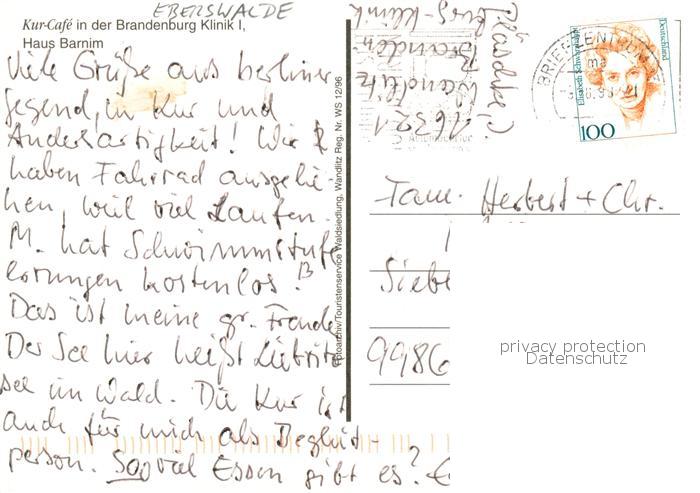 EBERSWALDE
Kur-Café in der Brandenburg Klinik I,
Haus Barnim
Viele Grüße aus berliner
gegend, in Kur und
Andersartigkeit! Wir 2
haben Fahrrad ausgelie-
hen, weil viel Laufen.
M. hat Schwimmstufe
kostenlos! B
Das ist meine gr. Freude
Der See hier heißt Liebnitz
see im Wald. Die Kur ist
auch für mich als Begleit-
person. Sooviel Essen gibt es?
Fotoarchiv/Touristenservice Waldsiedlung, Wandlitz Reg. Nr. WS 12/96
Burg-Klinik
Branden-
Wandlitz
16321
BRIEFZENTRUM
Elisabeth Schwarzhaupt
Deutschland
100
Fam. Herbert + Chr.
Siebe
9986
privacy protection
Datenschutz